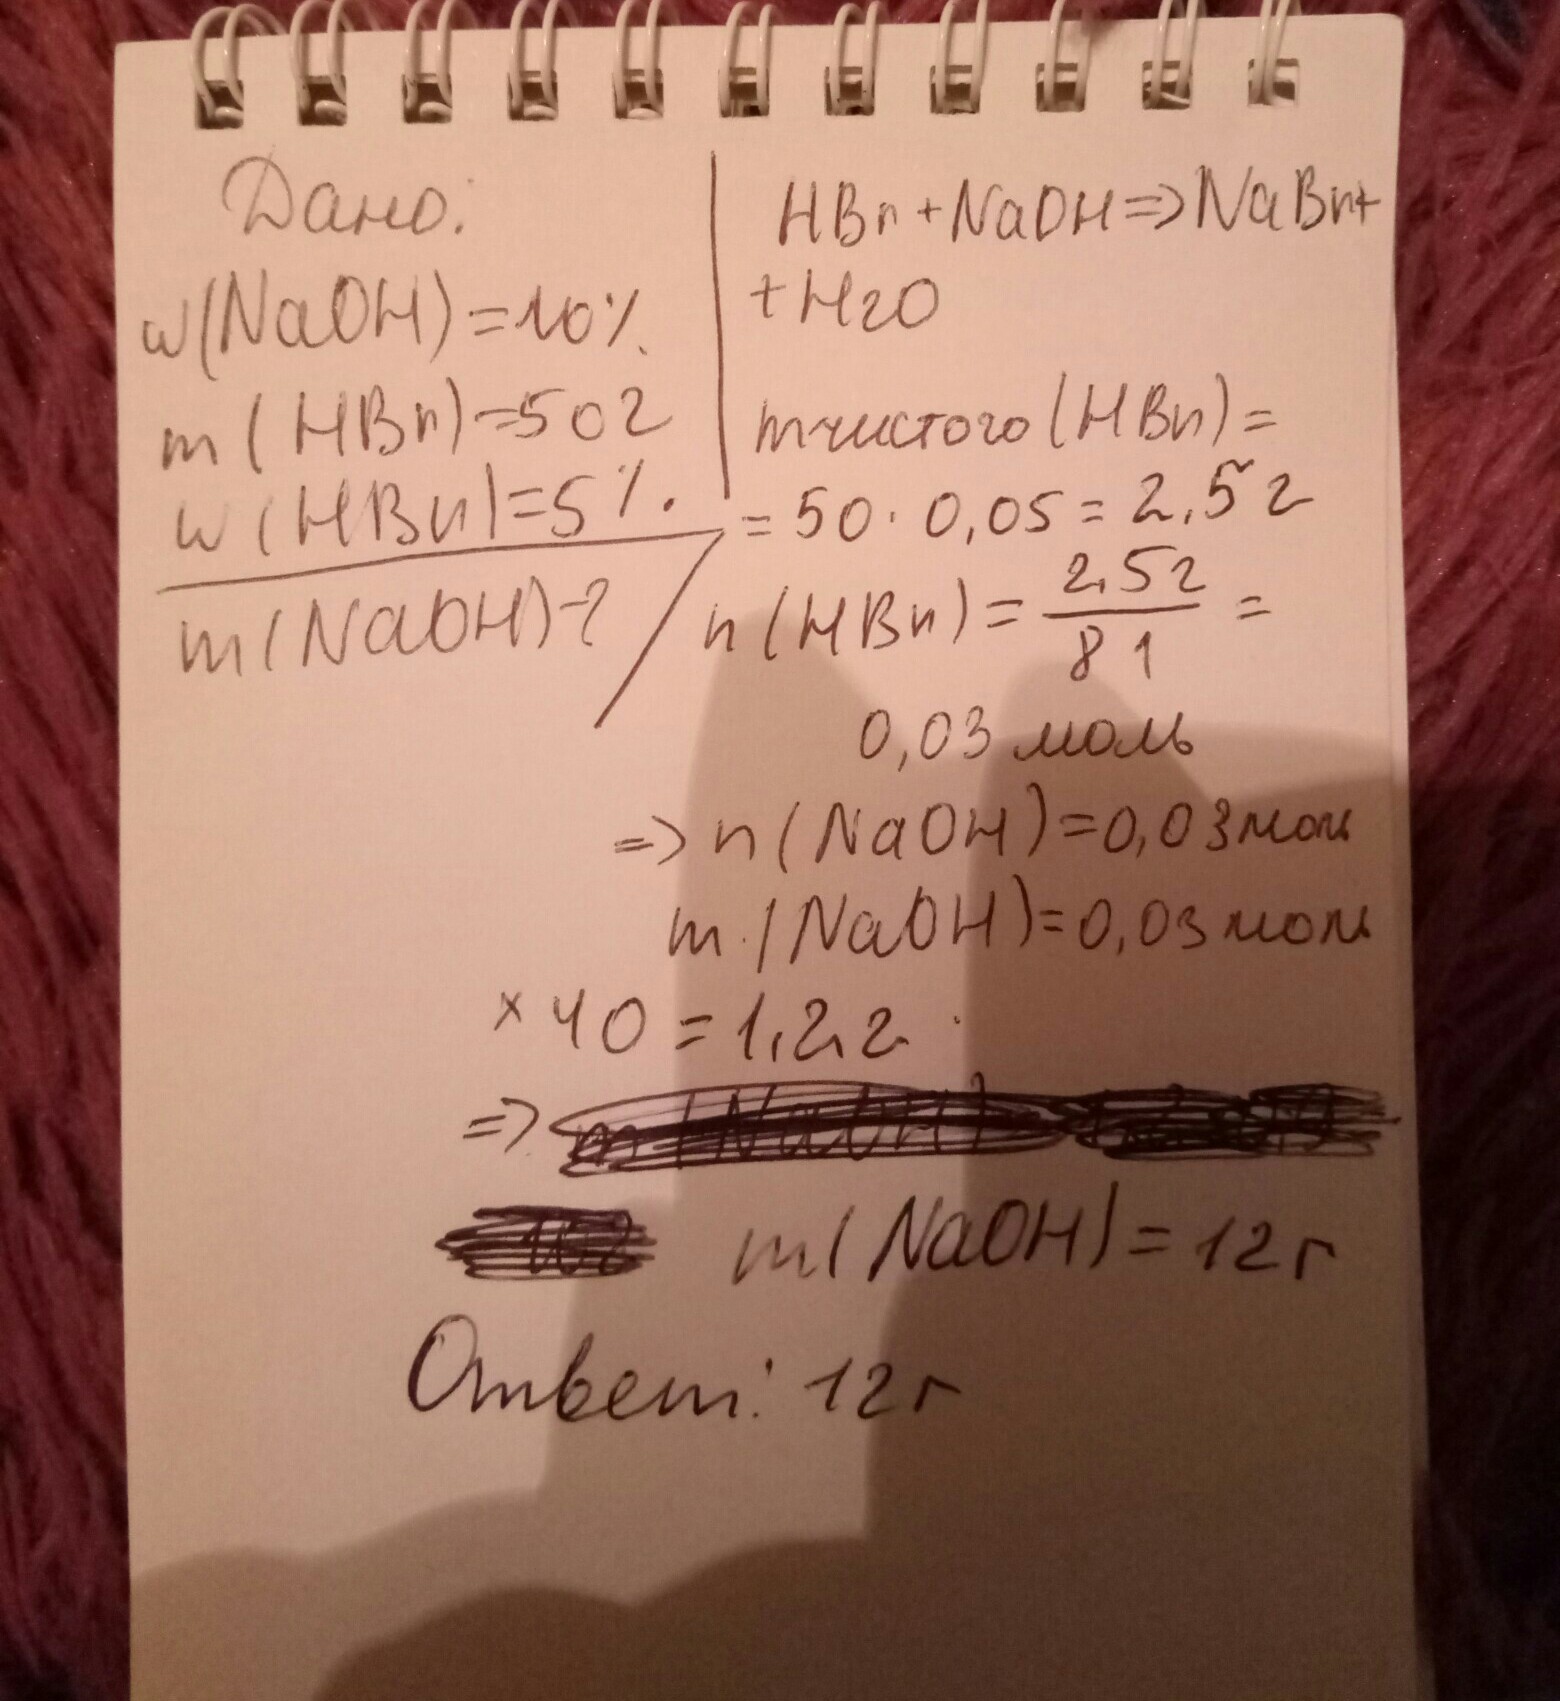 Дано:
w(NaOH)=10%
m(HBr)=50г
w(HBr)=5%.
m(NaOH)-?
HBr+NaOH=>NaBr+
+H2O
mчистого(HBr)=
=50·0,05=2,5г
n(HBr)=2,5г/81=
0,03 моль
=>n(NaOH)=0,03моль
m(NaOH)=0,03моль
×40=1,2г
=>
m(NaOH)=12г
Ответ: 12г